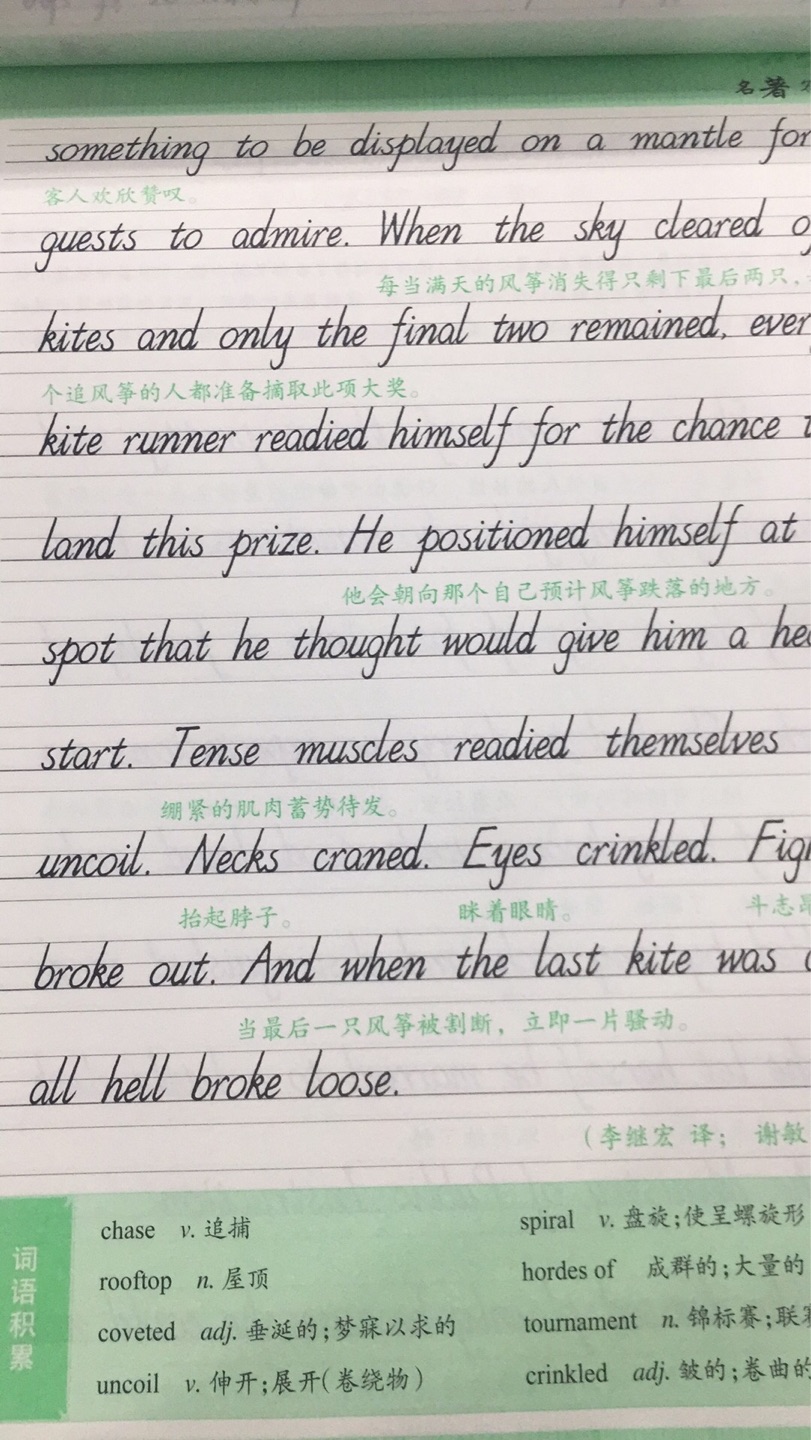 名著
something to be displayed on a mantle for
客人欢欣赞叹。
guests to admire. When the sky cleared
每当满天的风筝消失得只剩下最后两只，
kites and only the final two remained,
个追风筝的人都准备摘取此项大奖。
kite runner readied himself for the chance
land this prize. He positioned himself at
他会朝向那个自己预计风筝跌落的地方。
spot that he thought would give him a
start. Tense muscles readied themselves
绷紧的肌肉蓄势待发。
uncoil. Necks craned. Eyes crinkled.
抬起脖子。 眯着眼睛。 斗志
broke out. And when the last kite was
当最后一只风筝被割断，立即一片骚动。
all hell broke loose.
（李继宏 译； 谢敏
词语积累
chase v. 追捕 spiral v. 盘旋；使呈螺旋形
rooftop n. 屋顶 hordes of 成群的；大量的
coveted adj. 垂涎的；梦寐以求的 tournament n. 锦标赛；
uncoil v. 伸开；展开（卷绕物） crinkled adj. 皱的；卷曲的